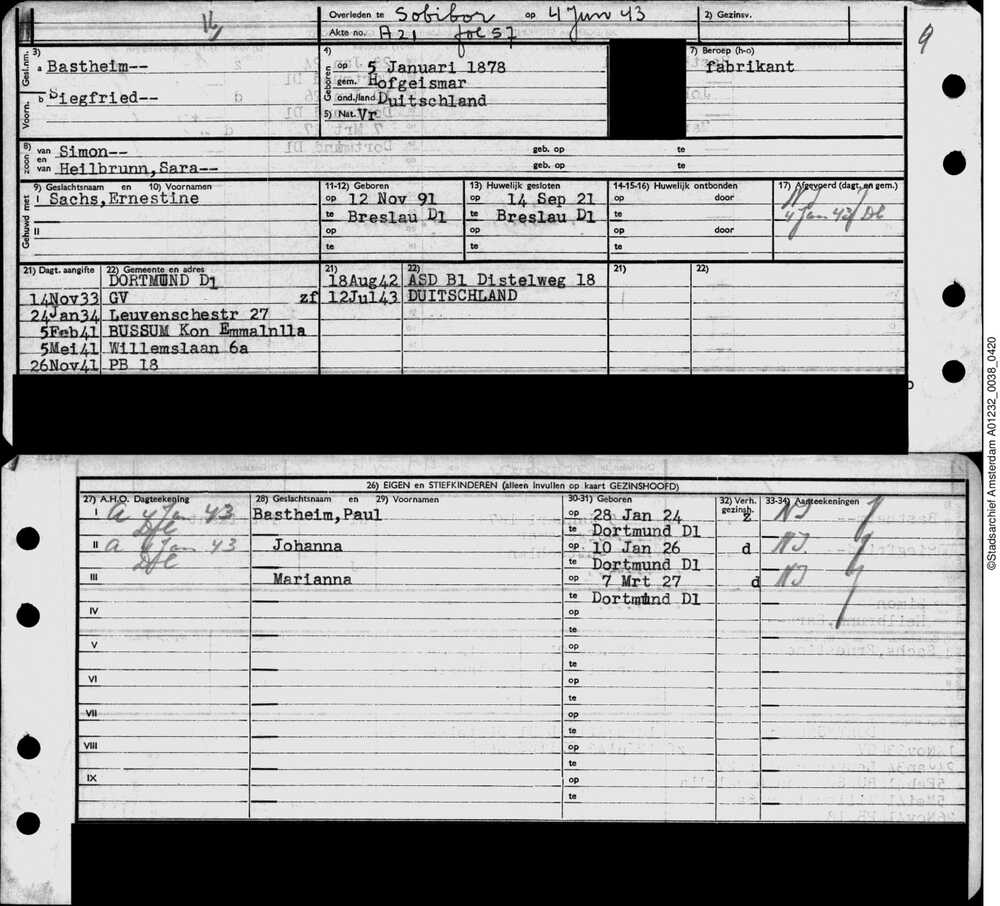 Overleden te Sobibor op 4 Jun 43 2) Gezinsv.
Akte no. A21 fol 57
9
3) Gesl.nm. a Bastheim--
Voorn. b Siegfried--
4) Geboren op 5 Januari 1878
gem. Hofgeismar
ond./land Duitschland
5) Nat. Vr
7) Beroep (h-o)
fabrikant
8) zoon van Simon-- geb. op te
en
van Heilbrunn,Sara-- geb. op te
Gehuwd met 9) Geslachtsnaam en 10) Voornamen 11-12) Geboren 13) Huwelijk gesloten 14-15-16) Huwelijk ontbonden 17) Afgevoerd (dagt. en gem.)
I Sachs,Ernestine op 12 Nov 91 op 14 Sep 21 op door
te Breslau Dl te Breslau Dl te 4 Jan 43
II op op op door
te te te
21) Dagt. aangifte 22) Gemeente en adres 21) 22) 21) 22)
DORTMUND Dl 18Aug42 ASD Bl Distelweg 18
14Nov33 GV zf 12Jul43 DUITSCHLAND
24Jan34 Leuvenschestr 27
5Feb41 BUSSUM Kon Emmalnlla
5Mei41 Willemslaan 6a
26Nov41 PB 18
26) EIGEN en STIEFKINDEREN (alleen invullen op kaart GEZINSHOOFD)
27) A.H.O. Dagteekening 28) Geslachtsnaam en 29) Voornamen 30-31) Geboren 32) Verh. gezinsh. 33-34) Aanteekeningen
I A 4 Jan 43 Bastheim,Paul op 28 Jan 24 z NI
te Dortmund Dl
II A 4 Jan 43 Johanna op 10 Jan 26 d NI
te Dortmund Dl
III Marianna op 7 Mrt 27 d NI
te Dortmund Dl
IV op
te
V op
te
VI op
te
VII op
te
VIII op
te
IX op
te
©Stadsarchief Amsterdam A01232_0038_0420